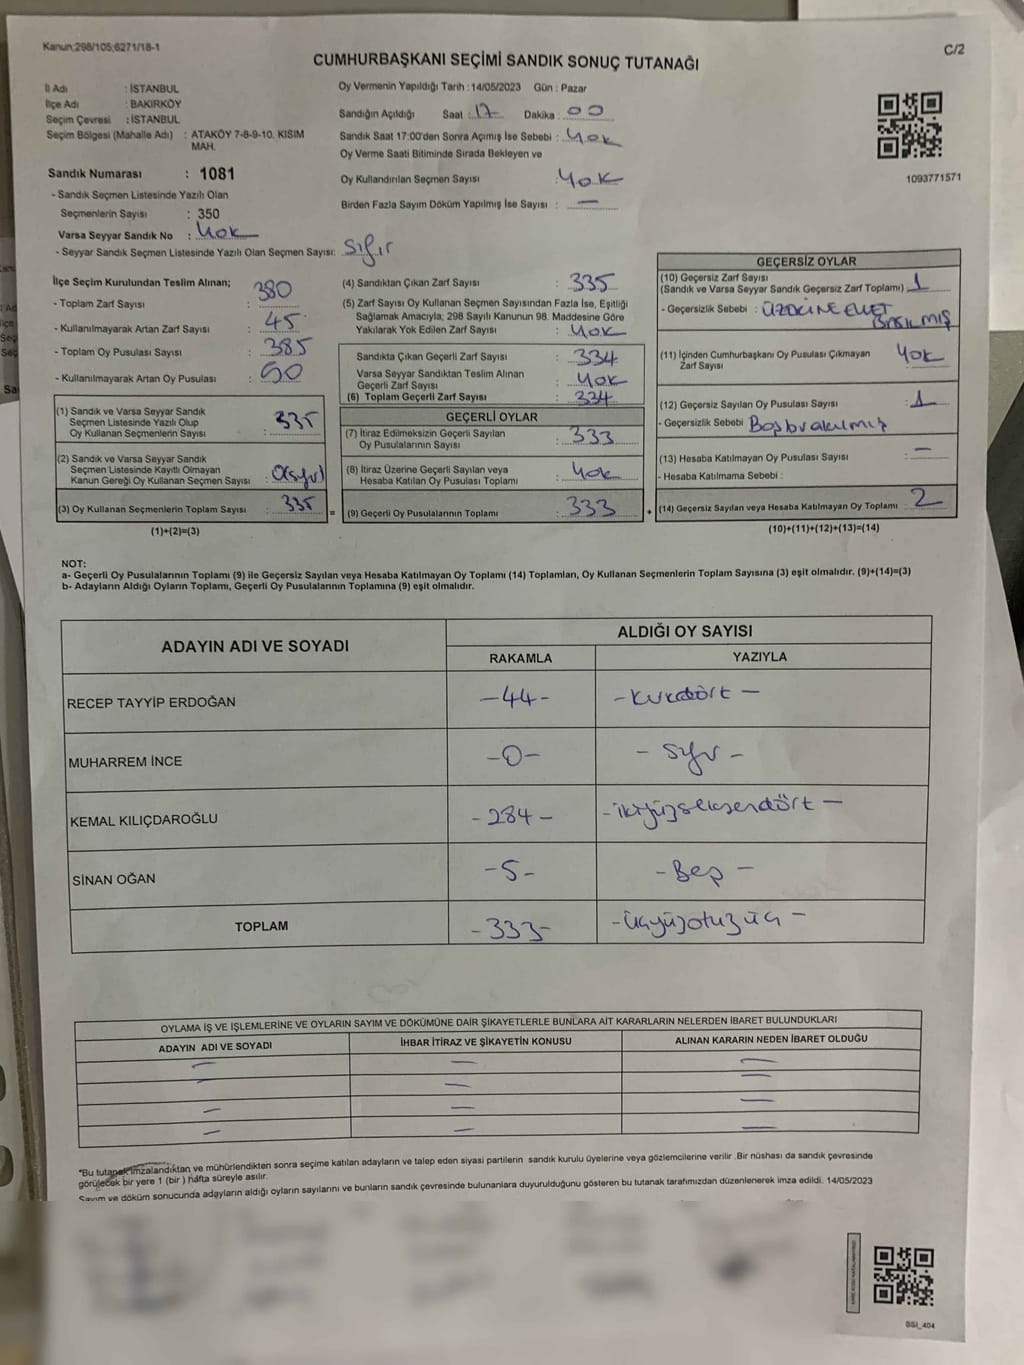 Kanun:298/105;6271/18-1
C/2
CUMHURBAŞKANI SEÇİMİ SANDIK SONUÇ TUTANAĞI
İl Adı : İSTANBUL
İlçe Adı : BAKIRKÖY
Seçim Çevresi : İSTANBUL
Seçim Bölgesi (Mahalle Adı) : ATAKÖY 7-8-9-10. KISIM
MAH.
Sandık Numarası : 1081
- Sandık Seçmen Listesinde Yazılı Olan
Seçmenlerin Sayısı : 350
Varsa Seyyar Sandık No : YOK
- Seyyar Sandık Seçmen Listesinde Yazılı Olan Seçmen Sayısı: Sıfır
Oy Vermenin Yapıldığı Tarih : 14/05/2023 Gün : Pazar
Sandığın Açıldığı Saat : 17 Dakika : 00
Sandık Saat 17:00'den Sonra Açımış İse Sebebi : YOK
Oy Verme Saati Bitiminde Sırada Bekleyen ve
Oy Kullandırılan Seçmen Sayısı : YOK
Birden Fazla Sayım Döküm Yapılmış İse Sayısı : —
1093771571
İlçe Seçim Kurulundan Teslim Alınan;
- Toplam Zarf Sayısı : 380
- Kullanılmayarak Artan Zarf Sayısı : 45
- Toplam Oy Pusulası Sayısı : 385
- Kullanılmayarak Artan Oy Pusulası : 50
(1) Sandık ve Varsa Seyyar Sandık
Seçmen Listesinde Yazılı Olup
Oy Kullanan Seçmenlerin Sayısı : 335
(2) Sandık ve Varsa Seyyar Sandık
Seçmen Listesinde Kayıtlı Olmayan
Kanun Gereği Oy Kullanan Seçmen Sayısı :
(3) Oy Kullanan Seçmenlerin Toplam Sayısı : 335
(1)+(2)=(3)
(4) Sandıktan Çıkan Zarf Sayısı : 335
(5) Zarf Sayısı Oy Kullanan Seçmen Sayısından Fazla İse, Eşitliği
Sağlamak Amacıyla; 298 Sayılı Kanunun 98. Maddesine Göre
Yakılarak Yok Edilen Zarf Sayısı : YOK
Sandıkta Çıkan Geçerli Zarf Sayısı : 334
Varsa Seyyar Sandıktan Teslim Alınan
Geçerli Zarf Sayısı : YOK
(6) Toplam Geçerli Zarf Sayısı : 334
GEÇERLİ OYLAR
(7) İtiraz Edilmeksizin Geçerli Sayılan
Oy Pusulalarının Sayısı : 333
(8) İtiraz Üzerine Geçerli Sayılan veya
Hesaba Katılan Oy Pusulası Toplamı : YOK
= (9) Geçerli Oy Pusulalarının Toplamı : 333 +
GEÇERSİZ OYLAR
(10) Geçersiz Zarf Sayısı
(Sandık ve Varsa Seyyar Sandık Geçersiz Zarf Toplamı) : 1
- Geçersizlik Sebebi : ÜZERİNE EVET
BASILMIŞ
(11) İçinden Cumhurbaşkanı Oy Pusulası Çıkmayan
Zarf Sayısı : YOK
(12) Geçersiz Sayılan Oy Pusulası Sayısı : 1
- Geçersizlik Sebebi : Boş bırakılmış
(13) Hesaba Katılmayan Oy Pusulası Sayısı : —
- Hesaba Katılmama Sebebi :
(14) Geçersiz Sayılan veya Hesaba Katılmayan Oy Toplamı : 2
(10)+(11)+(12)+(13)=(14)
NOT:
a- Geçerli Oy Pusulalarının Toplamı (9) ile Geçersiz Sayılan veya Hesaba Katılmayan Oy Toplamı (14) Toplamları, Oy Kullanan Seçmenlerin Toplam Sayısına (3) eşit olmalıdır. (9)+(14)=(3)
b- Adayların Aldığı Oyların Toplamı, Geçerli Oy Pusulalarının Toplamına (9) eşit olmalıdır.
ADAYIN ADI VE SOYADI ALDIĞI OY SAYISI
RAKAMLA YAZIYLA
RECEP TAYYİP ERDOĞAN -44- -kırkdört-
MUHARREM İNCE -0- -sıfır-
KEMAL KILIÇDAROĞLU -284- -ikiyüzseksendört-
SİNAN OĞAN -5- -Beş-
TOPLAM -333- -üçyüzotuzüç-
OYLAMA İŞ VE İŞLEMLERİNE VE OYLARIN SAYIM VE DÖKÜMÜNE DAİR ŞİKAYETLERLE BUNLARA AİT KARARLARIN NELERDEN İBARET BULUNDUKLARI
ADAYIN ADI VE SOYADI İHBAR İTİRAZ VE ŞİKAYETİN KONUSU ALINAN KARARIN NEDEN İBARET OLDUĞU
— — —
— — —
— — —
— — —
*Bu tutanak imzalandıktan ve mühürlendikten sonra seçime katılan adayların ve talep eden siyasi partilerin sandık kurulu üyelerine veya gözlemcilerine verilir .Bir nüshası da sandık çevresinde
görülecek bir yere 1 (bir ) hafta süreyle asılır.
Sayım ve döküm sonucunda adayların aldığı oyların sayılarını ve bunların sandık çevresinde bulunanlara duyurulduğunu gösteren bu tutanak tarafımızdan düzenlenerek imza edildi. 14/05/2023
SSI_404